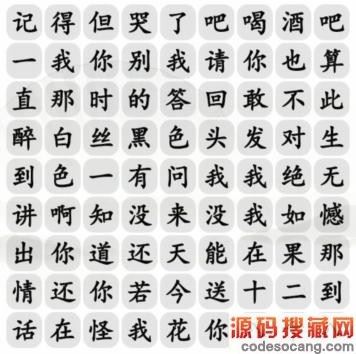 记得但哭了吧喝酒吧
一我你别我请你也算
直那时的答回敢不此
醉白丝黑色头发对生
到色一有问我我绝无
讲啊知没来没我如憾
出你道还天能在果那
情还你若今送十二到
话在怪我花你
源码搜藏网
codesocang.com